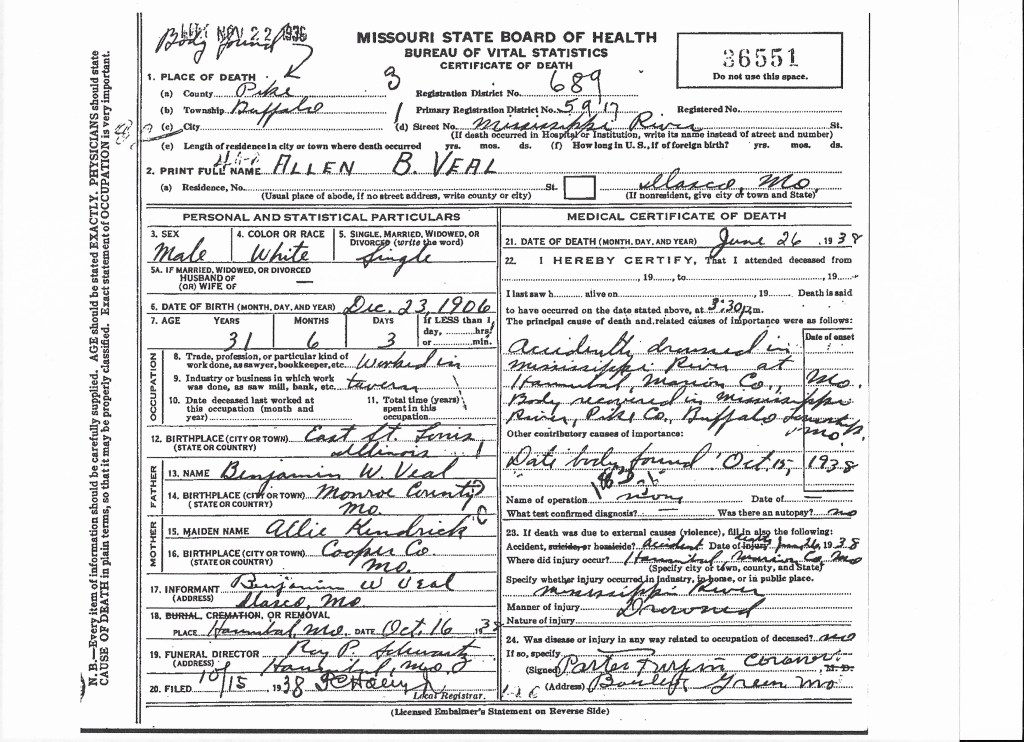 NOV 22 1938
Body found
MISSOURI STATE BOARD OF HEALTH
BUREAU OF VITAL STATISTICS
CERTIFICATE OF DEATH
36551
Do not use this space.
1. PLACE OF DEATH
(a) County Pike 3 Registration District No. 689
(b) Township Buffalo 1 Primary Registration District No. 5917 Registered No.
(c) City (d) Street No. Mississippi River St.
(If death occurred in Hospital or Institution, write its name instead of street and number)
(e) Length of residence in city or town where death occurred yrs. mos. ds. (f) How long in U. S., if of foreign birth? yrs. mos. ds.
2. PRINT FULL NAME ALLEN B. VEAL
(a) Residence, No. St. Ilasco, Mo.
(Usual place of abode, if no street address, write county or city) (If nonresident, give city or town and State)
PERSONAL AND STATISTICAL PARTICULARS
3. SEX Male
4. COLOR OR RACE White
5. SINGLE, MARRIED, WIDOWED, OR DIVORCED (write the word) Single
5A. IF MARRIED, WIDOWED, OR DIVORCED
HUSBAND OF
(OR) WIFE OF —
6. DATE OF BIRTH (MONTH, DAY, AND YEAR) Dec. 23, 1906
7. AGE YEARS MONTHS DAYS If LESS than 1
31 6 3 day, hrs.
or min.
OCCUPATION
8. Trade, profession, or particular kind of
work done, as sawyer, bookkeeper, etc. Worked in
9. Industry or business in which work
was done, as saw mill, bank, etc. tavern
10. Date deceased last worked at
this occupation (month and
year)
11. Total time (years)
spent in this
occupation
12. BIRTHPLACE (CITY OR TOWN) East St. Louis
(STATE OR COUNTRY) Illinois
FATHER
13. NAME Benjamin W. Veal
14. BIRTHPLACE (CITY OR TOWN) Monroe County
(STATE OR COUNTRY) Mo.
MOTHER
15. MAIDEN NAME Allie Kendrick
16. BIRTHPLACE (CITY OR TOWN) Cooper Co.
(STATE OR COUNTRY) Mo.
17. INFORMANT Benjamin W Veal
(ADDRESS) Ilasco, Mo.
18. BURIAL, CREMATION, OR REMOVAL
PLACE Hannibal, Mo. DATE Oct. 16 1938
19. FUNERAL DIRECTOR Roy P. Schwartz
(ADDRESS) Hannibal, Mo
20. FILED 10/15 1938
Local Registrar.
MEDICAL CERTIFICATE OF DEATH
21. DATE OF DEATH (MONTH, DAY, AND YEAR) June 26, 1938
22. I HEREBY CERTIFY, That I attended deceased from
, 19 , to , 19
I last saw h alive on , 19 Death is said
to have occurred on the date stated above, at 3:30 p.m.
The principal cause of death and related causes of importance were as follows:
Date of onset
Accidently drowned in
Mississippi River at
Hannibal, Marion Co., Mo.
Body recovered in Mississippi
River, Pike Co., Buffalo Township,
Mo
Other contributory causes of importance:
Date body found Oct. 15, 1938
Name of operation none Date of
What test confirmed diagnosis? — Was there an autopsy? no
23. If death was due to external causes (violence), fill in also the following:
Accident, suicide, or homicide? Accident Date of injury June 26, 1938
Where did injury occur? Hannibal, Marion Co, Mo
(Specify city or town, county, and State)
Specify whether injury occurred in industry, in home, or in public place.
Mississippi River
Manner of injury Drowned
Nature of injury
24. Was disease or injury in any way related to occupation of deceased? no
If so, specify
(Signed) Coroner M. D.
(Address) Bowling Green Mo
(Licensed Embalmer's Statement on Reverse Side)
N. B.—Every item of information should be carefully supplied. AGE should be stated EXACTLY. PHYSICIANS should state
CAUSE OF DEATH in plain terms, so that it may be properly classified. Exact statement of OCCUPATION is very important.